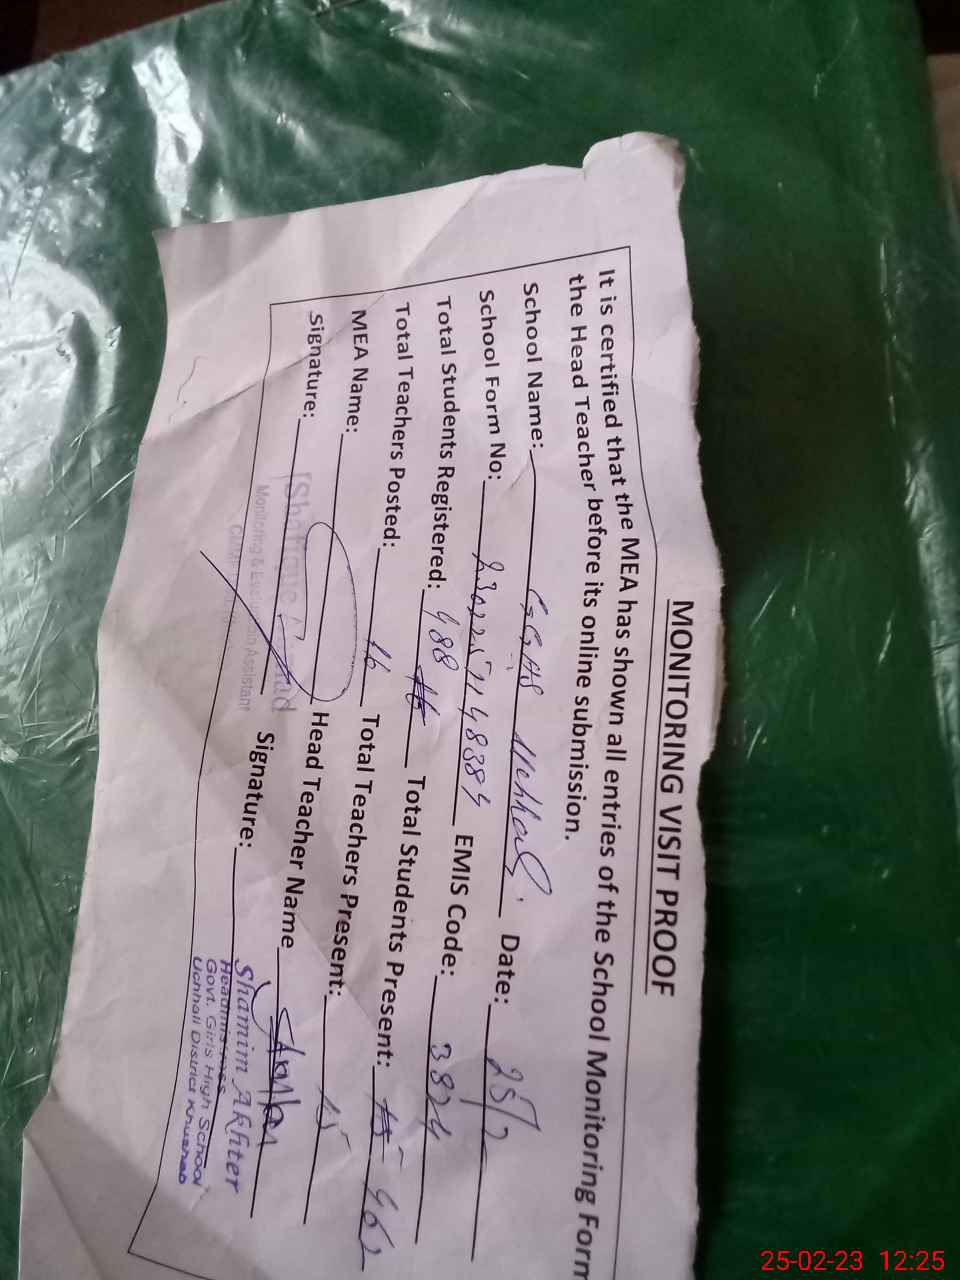 MONITORING VISIT PROOF
It is certified that the MEA has shown all entries of the School Monitoring Form
the Head Teacher before its online submission.
School Name: GGHS Uchhali. Date: 25/2
School Form No: EMIS Code: 3824
Total Students Registered: 488 16 Total Students Present: 15 462
Total Teachers Posted: 16 Total Teachers Present: 15
MEA Name: Head Teacher Name
Signature: Signature:
Monitoring & Evaluation Assistant
Shamim Akhter
Headmistress
Govt. Girls High School
Uchhali District Khushab
25-02-23 12:25